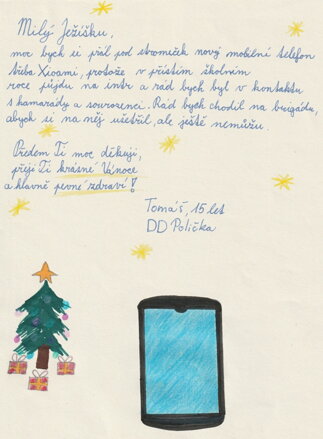 Milý Ježíšku,
moc bych si přál pod stromeček nový mobilní telefon
třeba Xioami, protože v příštím školním
roce půjdu na intr a rád bych byl v kontaktu
s kamarády a sourozenci. Rád bych chodil na brigádu,
abych si na něj ušetřil, ale ještě nemůžu.
Předem Ti moc děkuji,
přeji Ti krásné Vánoce
a hlavně pevné zdraví!
Tomáš, 15 let
DD Polička